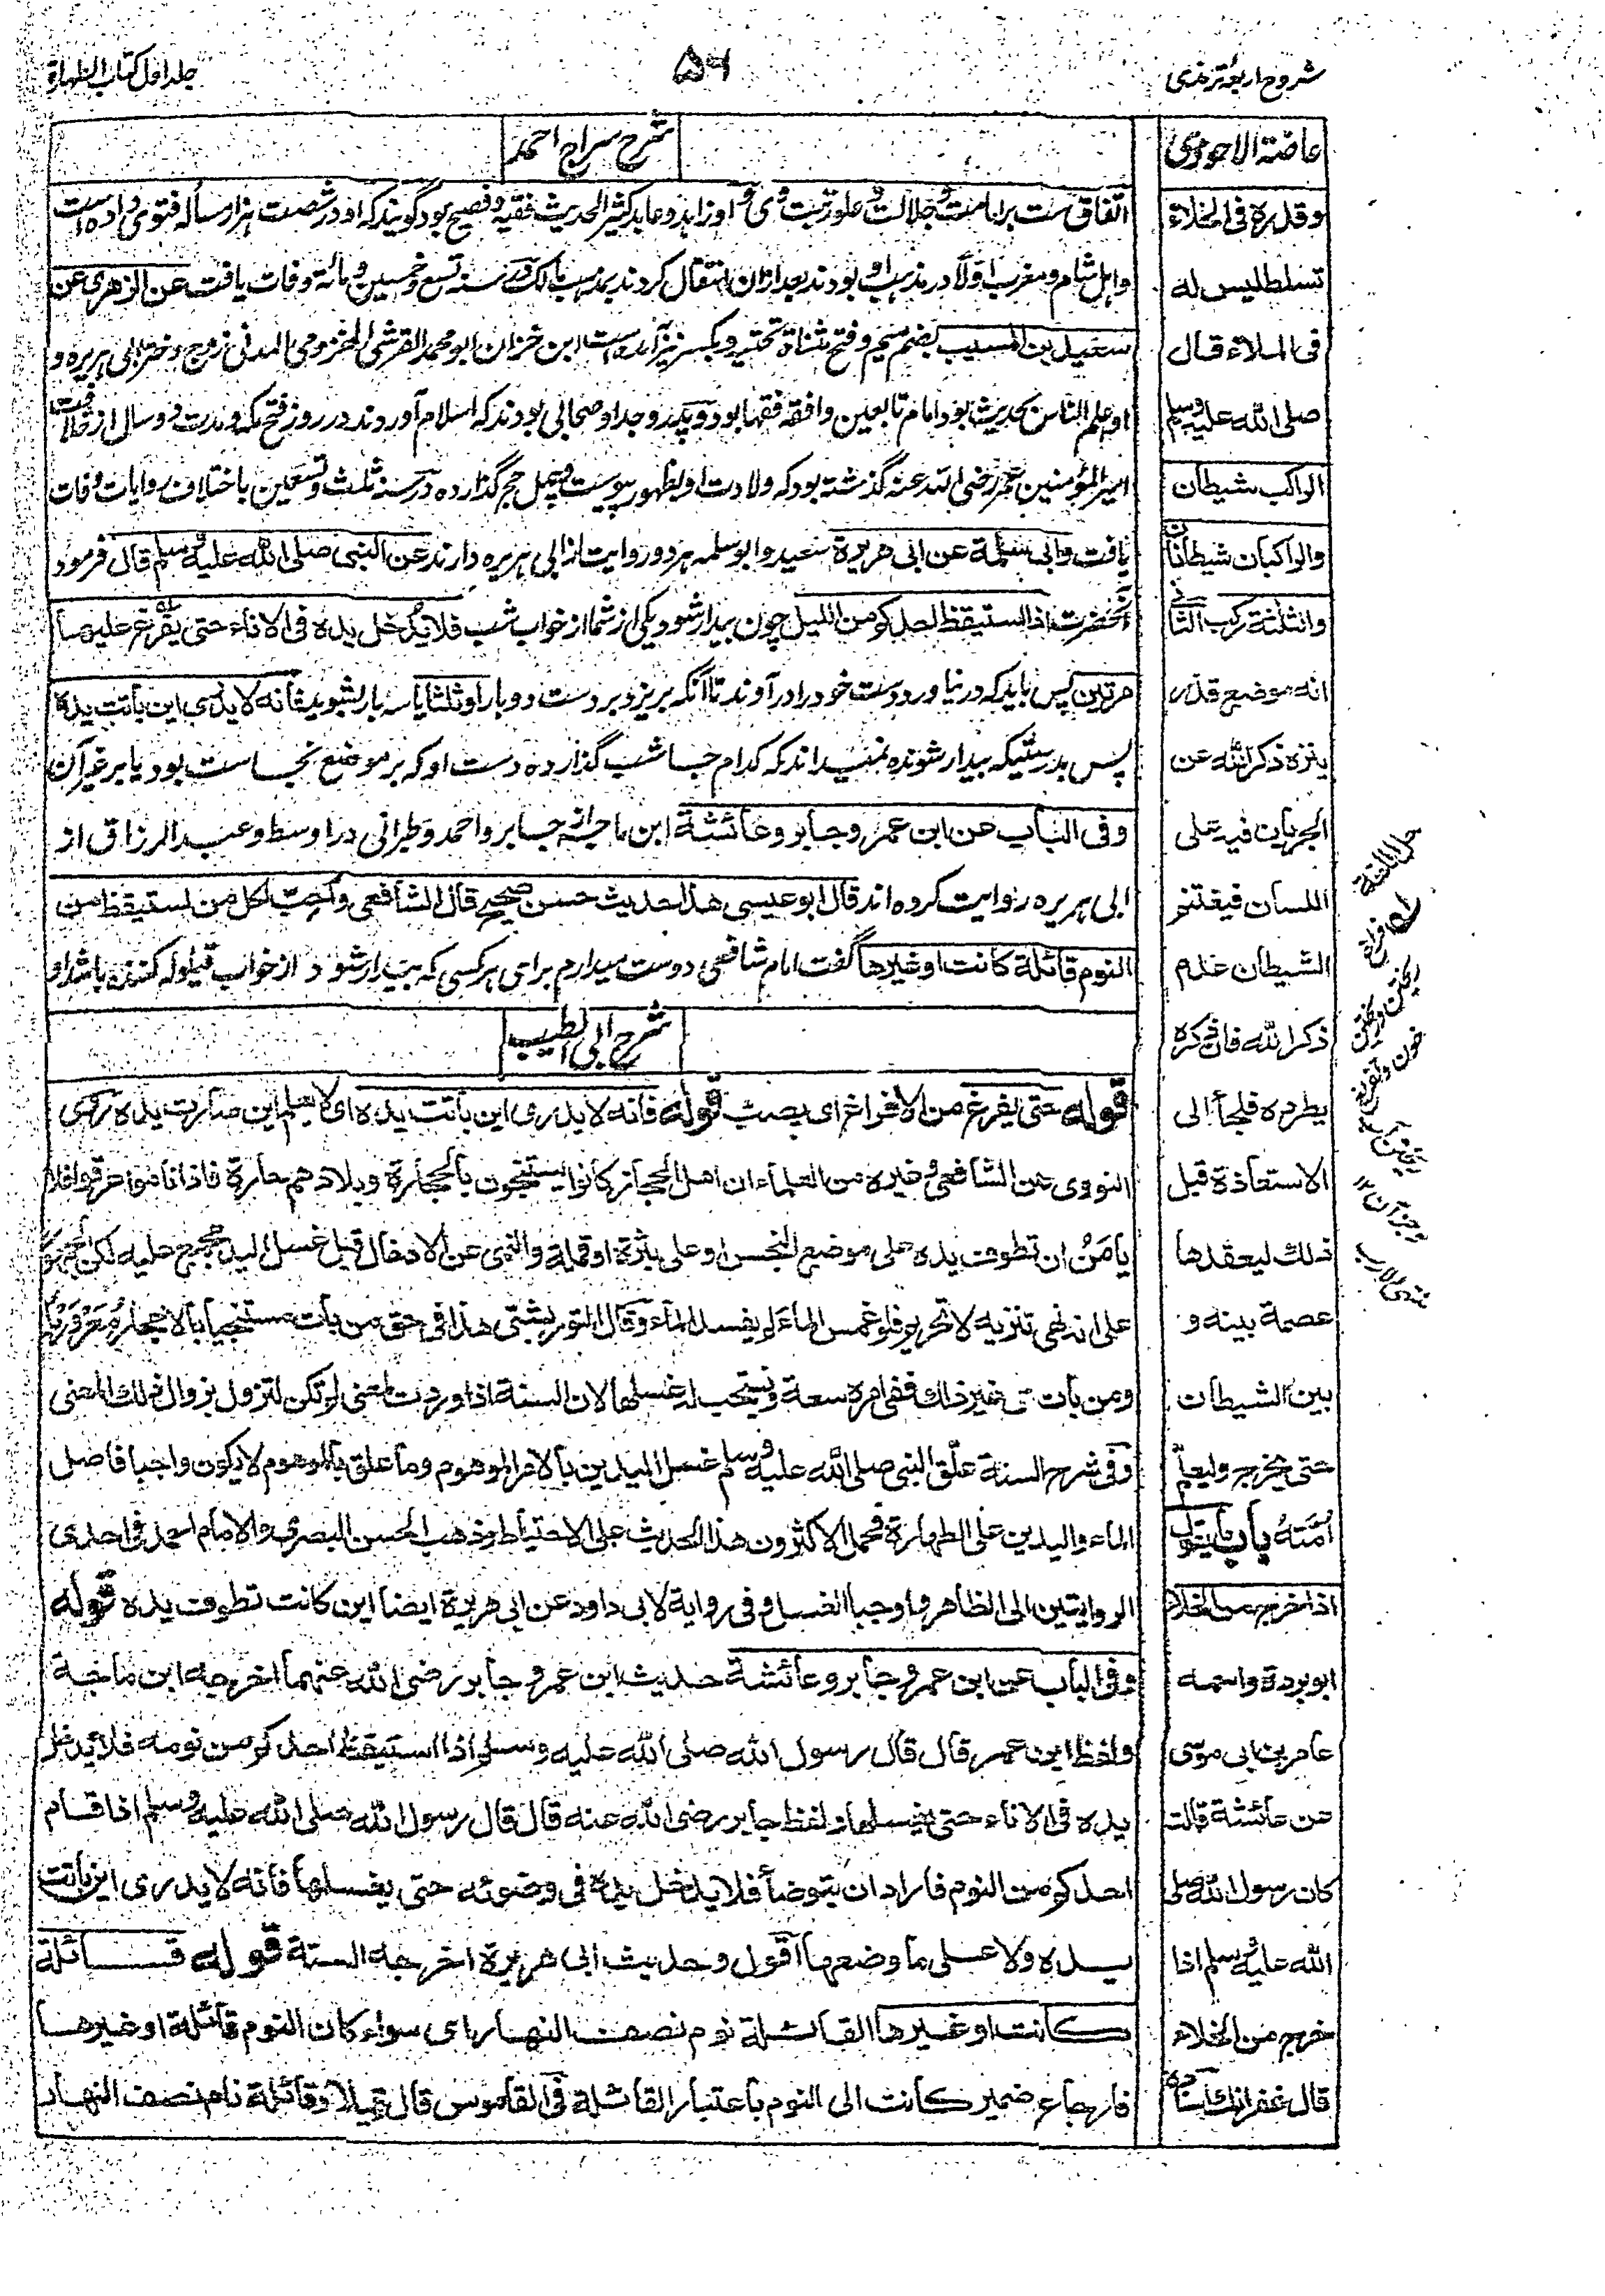 شروح اربعه ترمذی
۵۶
جلد اول کتاب الطهارة
عارضة الاحوذی
وقدره فی الخلاء
تسلط لیس له
فی الملاء قال
صلی الله علیه وسلم
الراکب شیطان
والراکبان شیطانان
والثلثة رکب الثانی
انه موضع قذر
ینزه ذکر الله عن
الجریان فیه علی
اللسان فیغتنم
الشیطان عدم
ذکر الله فان ذکره
یطرده فلجأ الی
الاستعاذة قبل
ذلك لیعقدها
عصمة بینه و
بین الشیطان
حتی یخرج ولیعلم
امته باب ما یقول
اذا خرج من الخلاء
ابو بردة واسمه
عامر بن ابی موسی
عن عائشة قالت
کان رسول الله صلی
الله علیه وسلم اذا
خرج من الخلاء
قال غفرانك اسناده
شرح سراج احمد
اتفاق ست بر امامت و جلالت و علو رتبت وی و او زاهد و عابد کثیر الحدیث فقیه و فصیح بود گویند که او در شصت هزار مسأله فتوی داده است
و اهل شام و مغرب اولاً در مذهب او بودند بعد ازان انتقال کردند بمذهب مالک و در سنه تسع و خمسین و مائة وفات یافت عن الزهری عن
سعید بن المسیب بضم میم و فتح مثناة تحتیه و بکسر نیز آمده است ابن حزن ابو محمد القرشی المخزومی المدنی زوج دختر ابی هریره و
او اعلم الناس بحدیث بود امام تابعین و افقه فقها بود و پدر و جد او صحابی بودند که اسلام آوردند در روز فتح مکه و مدت دو سال از خلافت
امیر المؤمنین عمر رضی الله عنه گذشته بود که ولادت او بظهور پیوست و چهل حج گذارده در سنه ثلث و تسعین باختلاف روایات وفات
یافت وابی سلمة عن ابی هریرة سعید و ابو سلمه هر دو روایت از ابی هریره دارند عن النبی صلی الله علیه وسلم قال فرمود
آنحضرت اذا استیقظ احدکم من اللیل چون بیدار شود یکی از شما از خواب شب فلا یدخل یده فی الاناء حتی یفرغ علیها
مرتین پس باید که در نیاورد دست خود را در آوند تا آنکه بریزد بر دست دو بار او ثلثا یا سه بار بشوید فانه لا یدری این باتت یده
پس بدرستیکه بیدار شونده نمیداند که کدام جا شب گذارده دست او که بر موضع نجاست بود یا بر غیر آن
وفی الباب عن ابن عمر وجابر وعائشة ابن ماجه از جابر و احمد و طبرانی در اوسط و عبد الرزاق از
ابی هریره روایت کرده اند قال ابو عیسی هذا حدیث حسن صحیح قال الشافعی واحب لکل من استیقظ من
النوم قائلة کانت او غیرها گفت امام شافعی دوست میدارم برای هر کسی که بیدار شود از خواب قیلوله کننده باشد او
شرح ابی الطیب
قوله حتی یفرغ من الافراغ ای یصب قوله فانه لا یدری این باتت یده ای لا یعلم این صارت یده رکی
النووی عن الشافعی وغیره من العلماء ان اهل الحجاز کانوا یستنجون بالحجارة وبلادهم حارة فاذا ناموا عرقوا فلا
یأمن ان تطوف یده علی موضع النجس او علی بثرة او قملة والنهی عن الادخال قبل غسل الید مجمع علیه لکن الجمهور
علی انه نهی تنزیه لا تحریم فلو غمس الماء لم یفسد الماء وقال التوربشتی هذا فی حق من بات مستنجیا بالاحجار معروریا
ومن بات علی غیر ذلك ففی امره سعة ویستحب له غسلها لان السنة اذا وردت لمعنی لم تکن لتزول بزوال ذلك المعنی
وفی شرح السنة علق النبی صلی الله علیه وسلم غسل الیدین بالامر الموهوم وما علق بالموهوم لا یکون واجبا فاصل
الماء والیدین علی الطهارة فحمل الاکثرون هذا الحدیث علی الاحتیاط وذهب الحسن البصری والامام احمد فی احدی
الروایتین الی الظاهر واوجبا الغسل وفی روایة لابی داود عن ابی هریرة ایضا این کانت تطوف یده قوله
وفی الباب عن ابن عمر وجابر وعائشة حدیث ابن عمر وجابر رضی الله عنهما اخرجه ابن ماجة
ولفظ ابن عمر قال قال رسول الله صلی الله علیه وسلم اذا استیقظ احدکم من نومه فلا یدخل
یده فی الاناء حتی یغسلها ولفظ جابر رضی الله عنه قال قال رسول الله صلی الله علیه وسلم اذا قام
احدکم من النوم فاراد ان یتوضأ فلا یدخل یده فی وضوئه حتی یغسلها فانه لا یدری این باتت
یده ولا علی ما وضعها اقول وحدیث ابی هریرة اخرجه الستة قوله قائلة
کانت او غیرها القائلة نوم نصف النهار ای سواء کان النوم قائلة او غیرها
فارجاع ضمیر کانت الی النوم باعتبار القائلة فی القاموس قال قیلا وقائلة نام نصف النهار